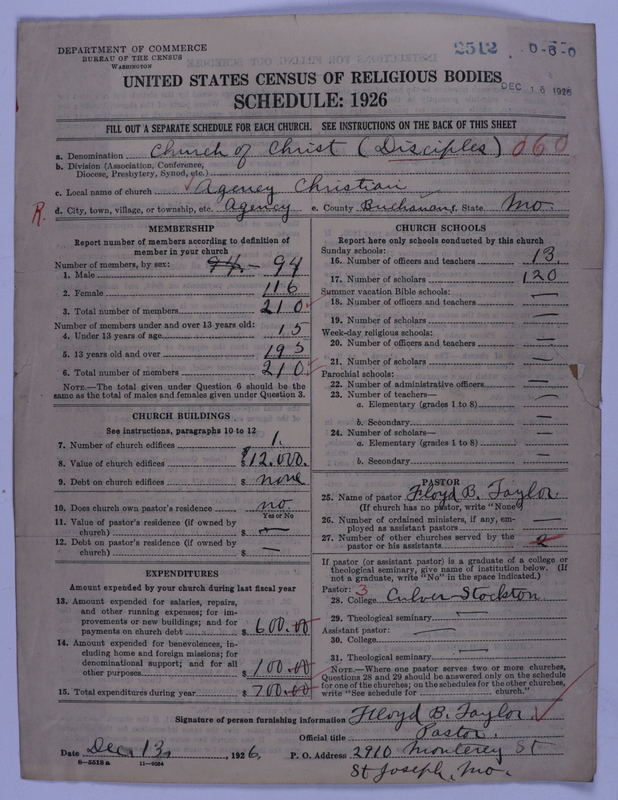 DEPARTMENT OF COMMERCE
BUREAU OF THE CENSUS
WASHINGTON
2512
0-6-0
DEC 16 1926
UNITED STATES CENSUS OF RELIGIOUS BODIES
SCHEDULE: 1926
FILL OUT A SEPARATE SCHEDULE FOR EACH CHURCH. SEE INSTRUCTIONS ON THE BACK OF THIS SHEET
a. Denomination Church of Christ (Disciples) 060
b. Division (Association, Conference,
Diocese, Presbytery, Synod, etc.)
c. Local name of church Agency Christian
R. d. City, town, village, or township, etc. Agency e. County Buchanan, State Mo.
MEMBERSHIP
Report number of members according to definition of
member in your church
Number of members, by sex: 94.-
1. Male 94
2. Female 116
3. Total number of members 210
Number of members under and over 13 years old:
4. Under 13 years of age 15
5. 13 years old and over 195
6. Total number of members 210
NOTE.—The total given under Question 6 should be the
same as the total of males and females given under Question 3.
CHURCH BUILDINGS
See instructions, paragraphs 10 to 12
7. Number of church edifices 1.
8. Value of church edifices $12.000.
9. Debt on church edifices $ none
10. Does church own pastor's residence no
Yes or No
11. Value of pastor's residence (if owned by
church) $ —
12. Debt on pastor's residence (if owned by
church) $ —
EXPENDITURES
Amount expended by your church during last fiscal year
13. Amount expended for salaries, repairs,
and other running expenses; for im-
provements or new buildings; and for
payments on church debt $ 600.00
14. Amount expended for benevolences, in-
cluding home and foreign missions; for
denominational support; and for all
other purposes $ 100.00
15. Total expenditures during year $ 700.00
CHURCH SCHOOLS
Report here only schools conducted by this church
Sunday schools:
16. Number of officers and teachers 13.
17. Number of scholars 120
Summer vacation Bible schools:
18. Number of officers and teachers —
19. Number of scholars —
Week-day religious schools:
20. Number of officers and teachers —
21. Number of scholars —
Parochial schools:
22. Number of administrative officers —
23. Number of teachers—
a. Elementary (grades 1 to 8) —
b. Secondary —
24. Number of scholars—
a. Elementary (grades 1 to 8) —
b. Secondary —
PASTOR
25. Name of pastor Floyd B. Taylor.
(If church has no pastor, write "None")
26. Number of ordained ministers, if any, em-
ployed as assistant pastors —
27. Number of other churches served by the
pastor or his assistants 2
If pastor (or assistant pastor) is a graduate of a college or
theological seminary, give name of institution below. (If
not a graduate, write "No" in the space indicated.)
Pastor: 3
28. College Culver-Stockton.
29. Theological seminary —
Assistant pastor: —
30. College
31. Theological seminary —
NOTE.—Where one pastor serves two or more churches,
Questions 28 and 29 should be answered only on the schedule
for one of the churches; on the schedules for the other churches,
write "See schedule for church."
Signature of person furnishing information Floyd B. Taylor
Official title Pastor.
Date Dec. 13, 1926. P. O. Address 2910 Monterey St
8-5518a 11-9054
St Joseph, Mo.